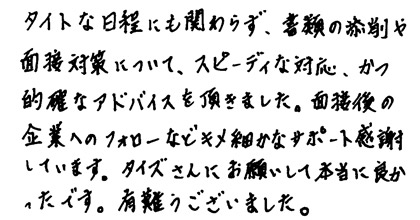 タイトな日程にも関わらず、書類の添削や
面接対策について、スピーディな対応、かつ
的確なアドバイスを頂きました。面接後の
企業へのフォローなどキメ細かなサポート感謝
しています。タイズさんにお願いして本当に良か
ったです。有難うございました。